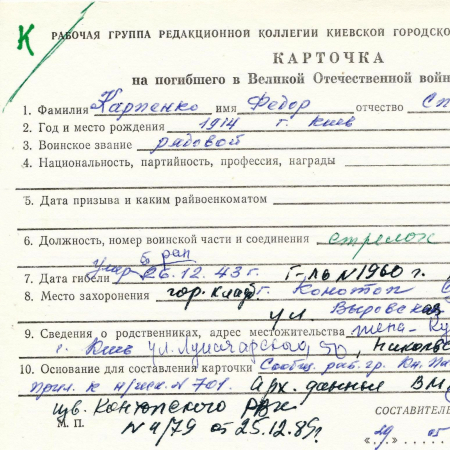 К
РАБОЧАЯ ГРУППА РЕДАКЦИОННОЙ КОЛЛЕГИИ КИЕВСКОЙ ГОРОДСКО
КАРТОЧКА
на погибшего в Великой Отечественной войн
1. Фамилия Карпенко имя Федор отчество Сп
2. Год и место рождения 1914 г. Киев
3. Воинское звание рядовой
4. Национальность, партийность, профессия, награды
5. Дата призыва и каким райвоенкоматом
6. Должность, номер воинской части и соединения стрелок
Умер от ран
7. Дата гибели 26.12.43 г. Г-ль №1960 г.
8. Место захоронения гор. кладб. г. Конотоп
ул. Выровская
9. Сведения о родственниках, адрес местожительства жена - Ку
г. Киев ул. Луначарского, 50, Никольс
10. Основание для составления карточки Сообщ. раб. гр. Кн. Па
Прил. к н/исх. № 701. Арх. данные ВМ
изв. Конотопского РВК
М. П. № 4/79 от 25.12.89г
СОСТАВИТЕЛ
«29» 05